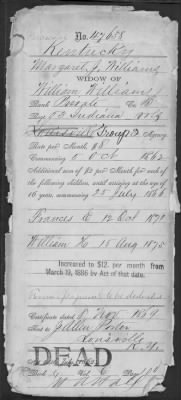 No. 117658
Kentucky
Margaret J. Williams
WIDOW OF
William Williams
Rank Private Co.
Reg 53 Indiana Vols
Louisville Group Agency
Rate per Month, $8
Commencing 5 Oct 1862
Additional sum of $2 per Month for each of
the following children, until arriving at the age of
16 years, commencing 25 July 1866
Frances E 12 Oct 1870
William H 15 Aug 1875
Increased to $12. per month from
March 19, 1886 by Act of that date.
to be deducted
Certificate dated Nov 1869
Sent to
Louisville
Ky
DEAD